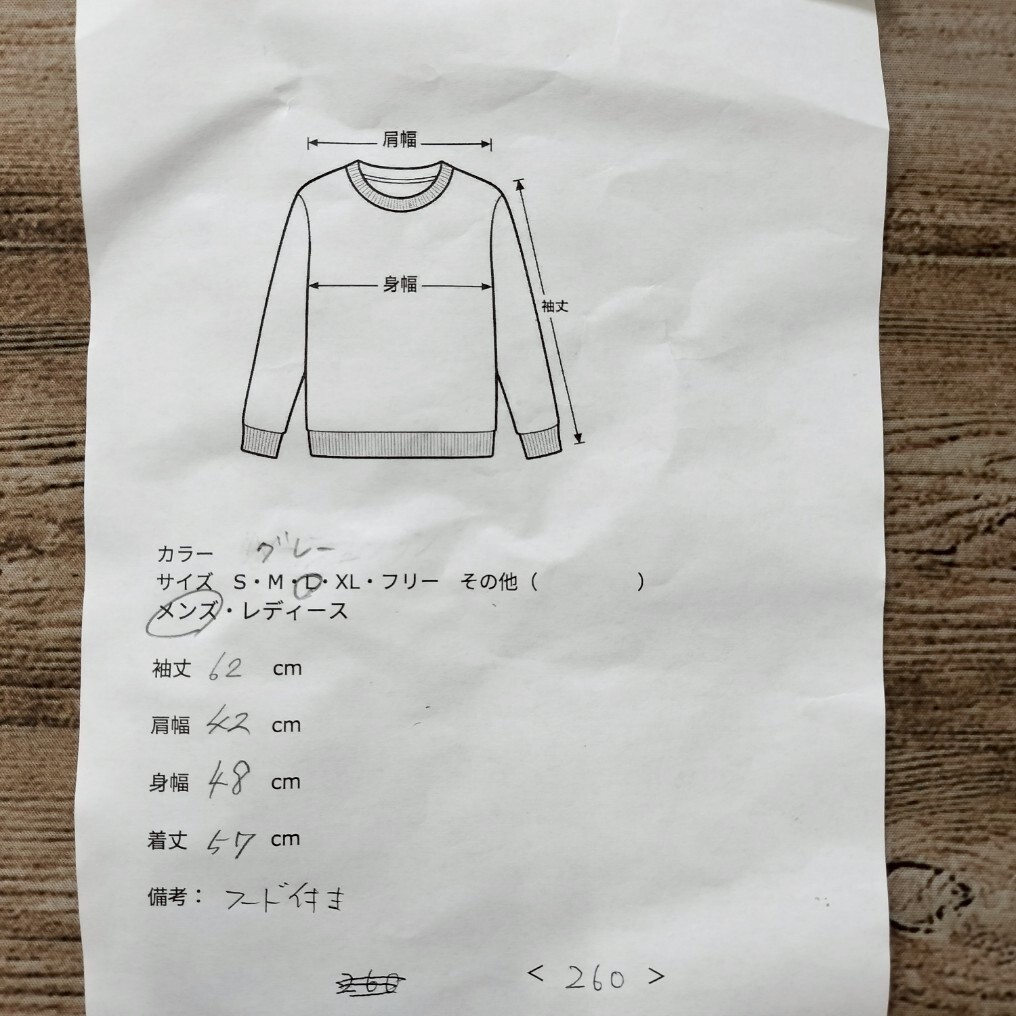 肩幅
身幅
袖丈
カラー グレー
サイズ S・M・L・XL・フリー その他（ ）
メンズ・レディース
袖丈 62 cm
肩幅 42 cm
身幅 48 cm
着丈 57 cm
備考： フード付き
260 < 260 >